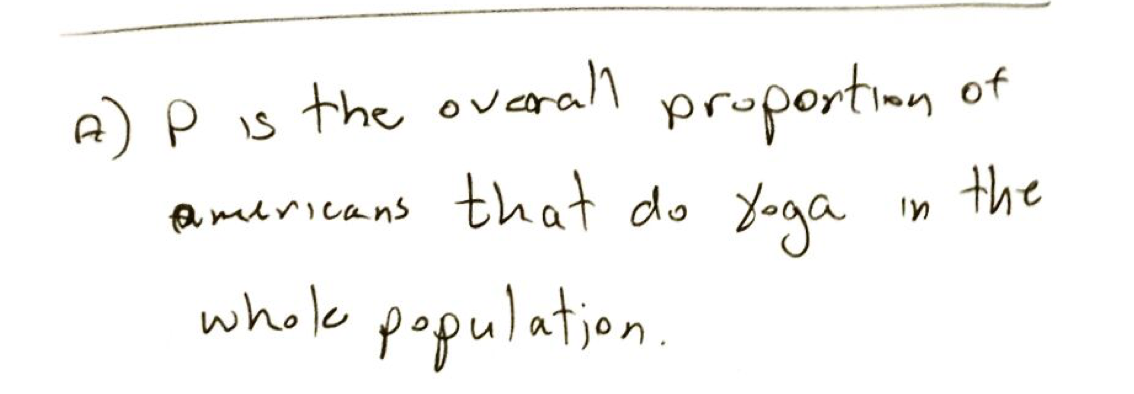 A) P is the overall proportion of
americans that do yoga in the
whole population.